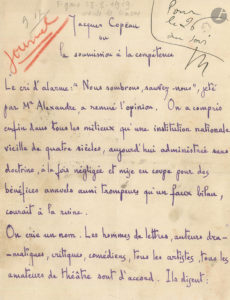 Journal
Pour
le 26
Jacques Copeau
ou
la soumission à la compétence
Le cri d'alarme: "Nous sombrons, sauvez-nous", jeté
par Mr Alexandre a remué l'opinion. On a compris
enfin dans tous les milieux que une institution nationale
vieille de quatre siècles, aujourd'hui administrée sans
doctrine, à la fois négligée et mise en coupe pour des
bénéfices annuels aussi trompeurs qu'un faux bilan,
courait à la ruine.
On crie un nom. Les hommes de lettres, auteurs dra-
-matiques, critiques, comédiens, tous les artistes, tous les
amateurs de théâtre sont d'accord. Ils disent: